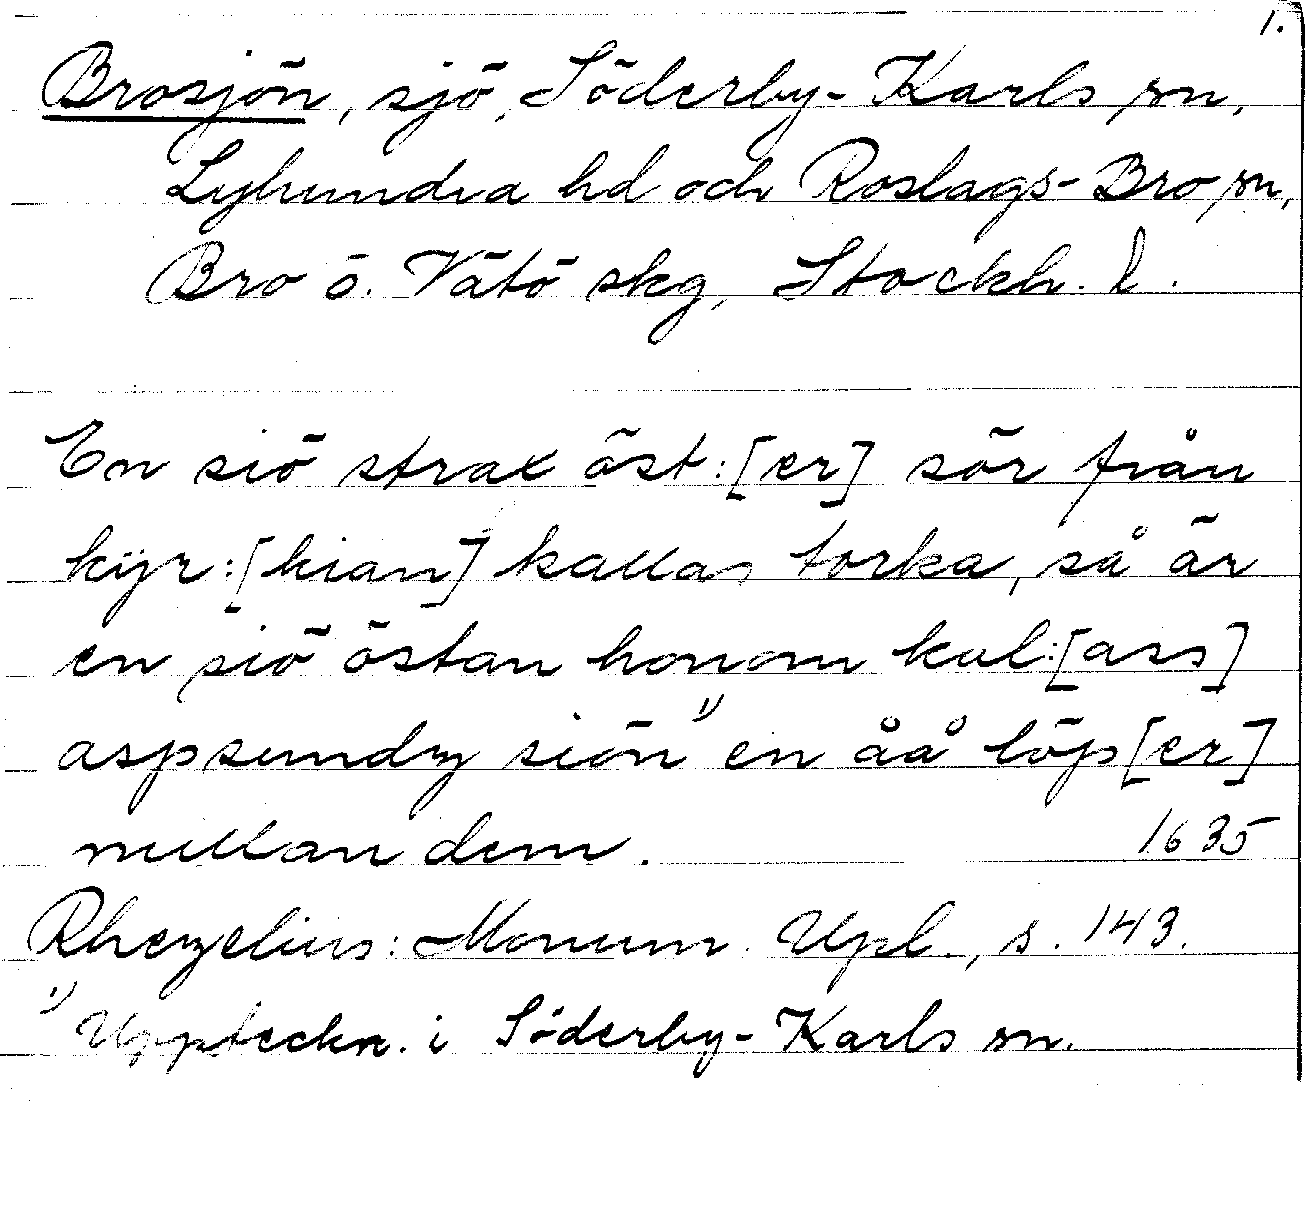 1.
Brosjön, sjö, Söderby-Karls sn,
Lyhundra hd och Roslags-Bro sn,
Bro o. Vätö skg, Stockh. l.
En siö strax öst:[er] sör från
kÿr:[kian] kallas torka, så är
en siö östan honom kal:[ass]
aspsundz siön 1) en åå löp[er]
mellan dem. 1635
Rhezelius: Monum. Upl., s. 143.
1) Uppteckn. i Söderby-Karls sn.